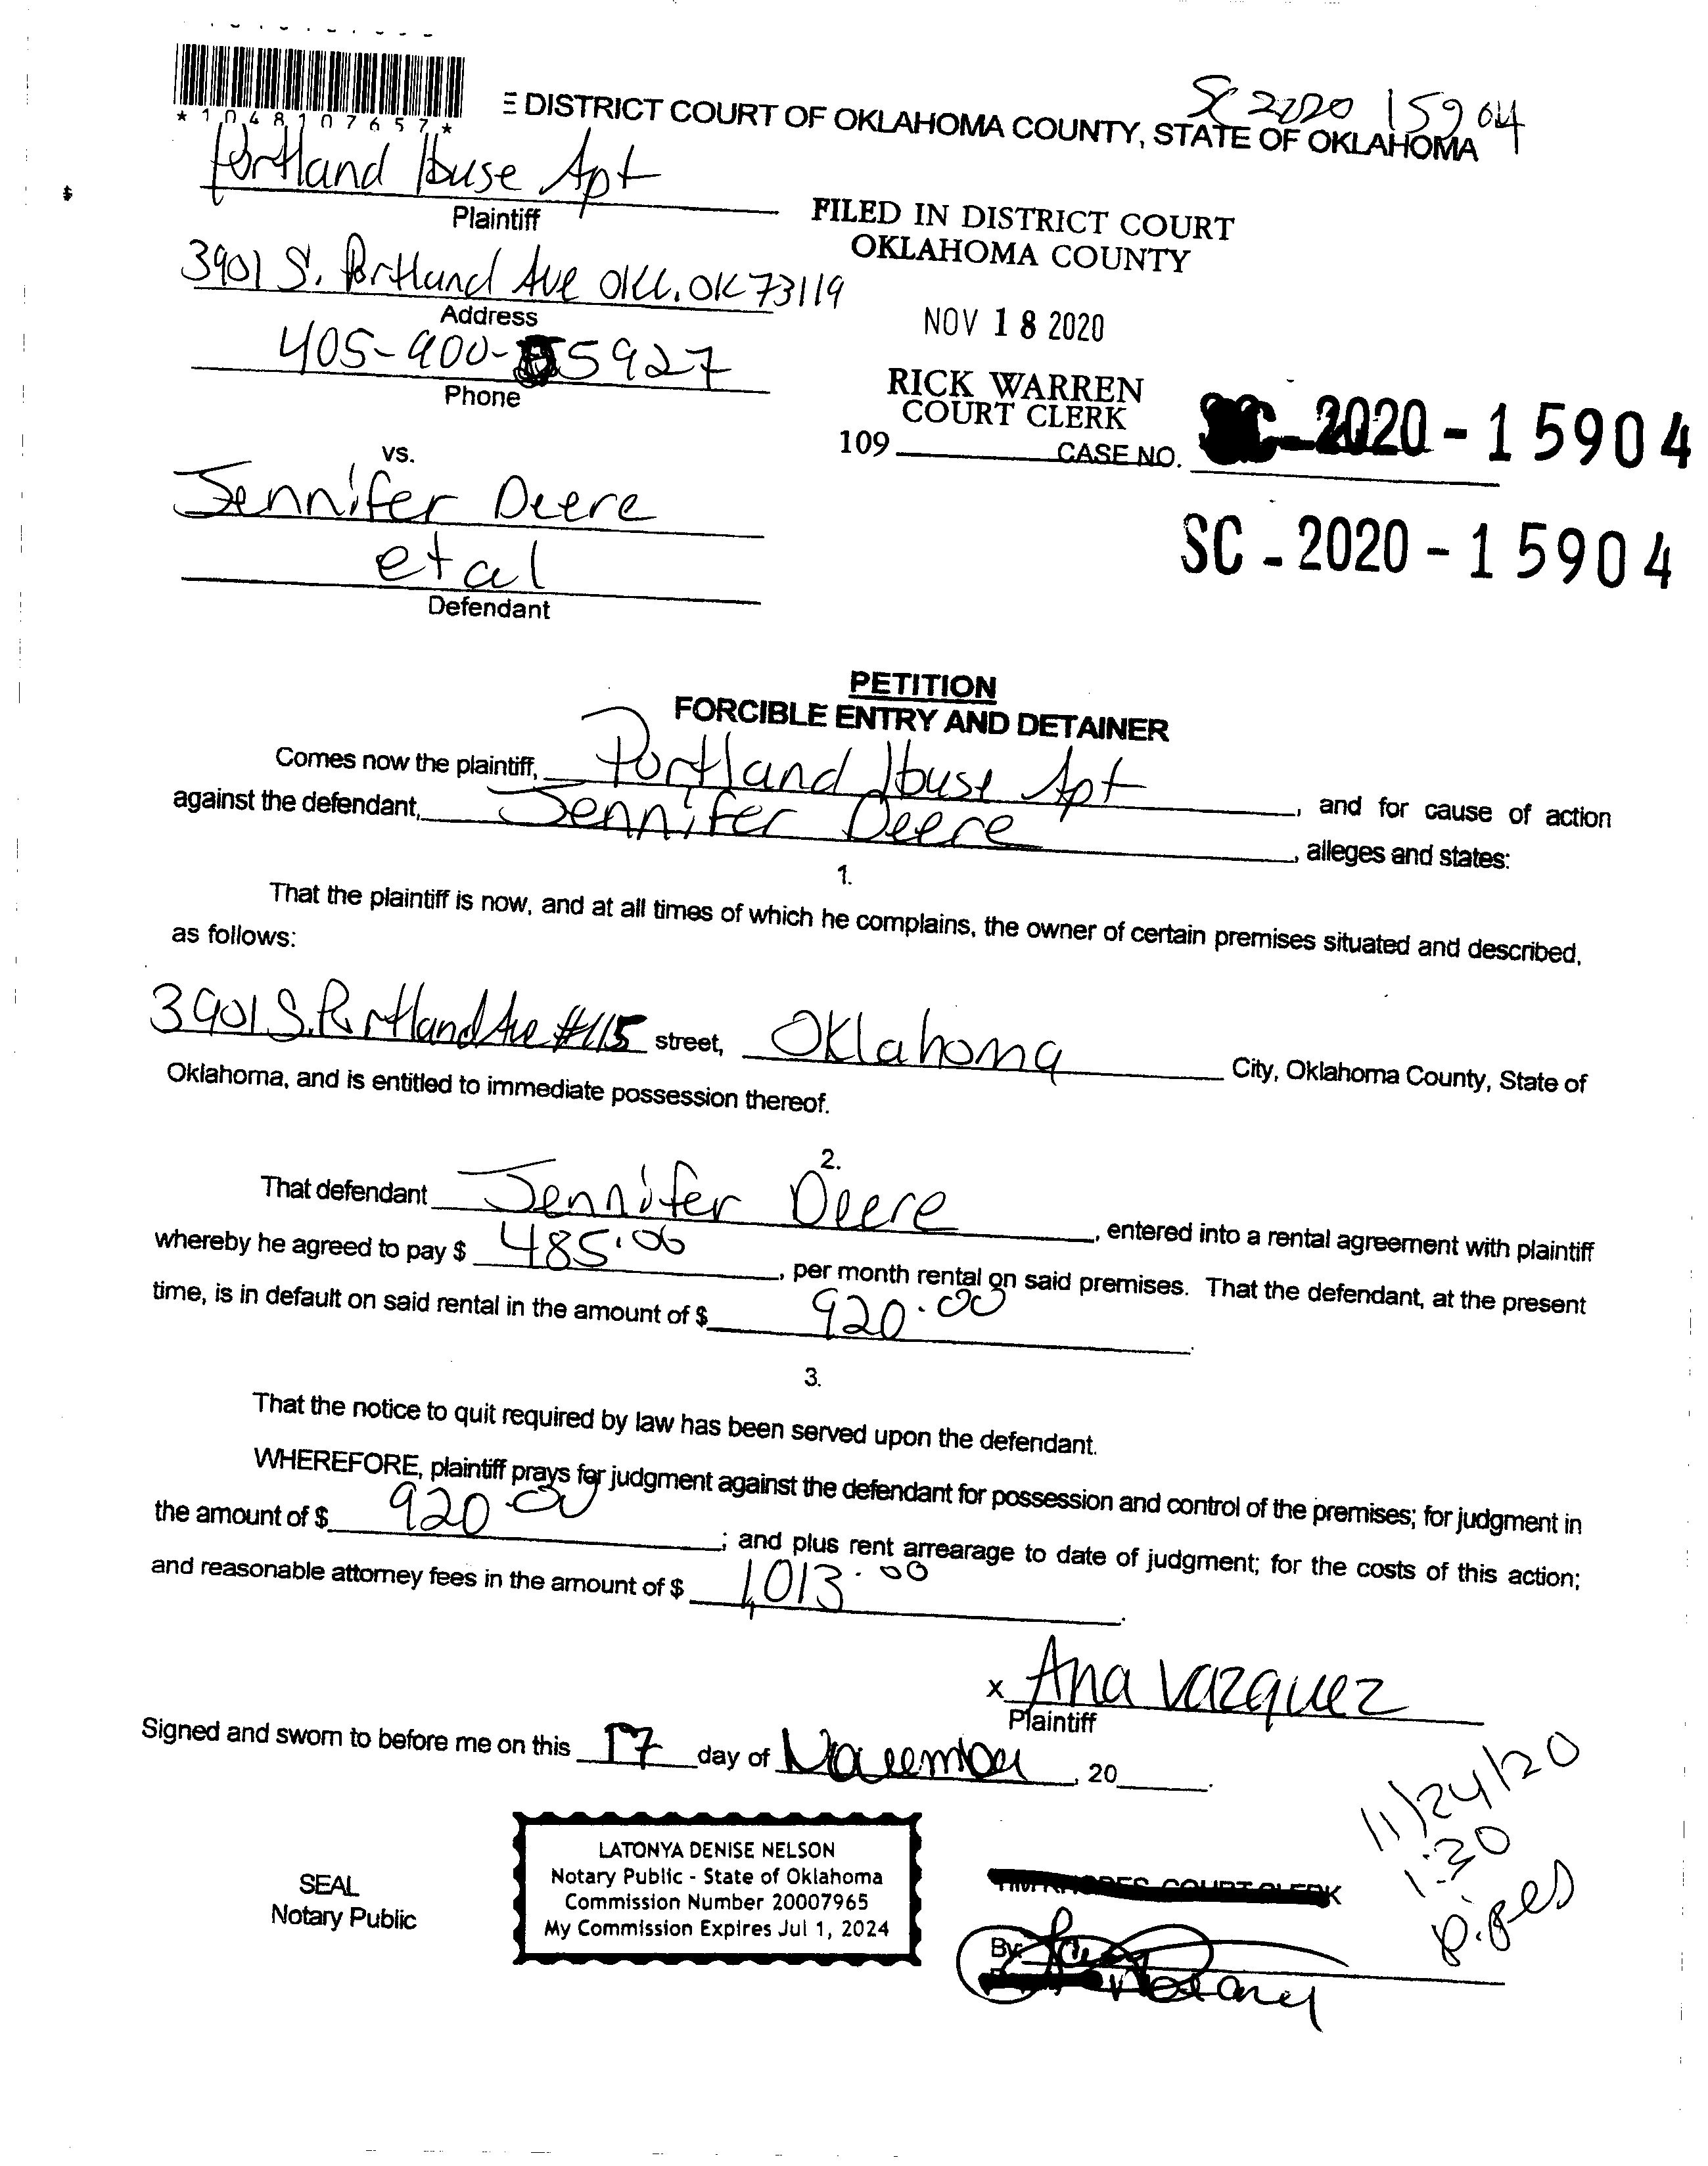 *1048107657*
E DISTRICT COURT OF OKLAHOMA COUNTY, STATE OF OKLAHOMA
SC 2020 15904
Portland House Apt
Plaintiff
3901 S. Portland Ave OKC. OK 73119
Address
405-900-5927
Phone
FILED IN DISTRICT COURT
OKLAHOMA COUNTY
NOV 18 2020
RICK WARREN
COURT CLERK
109 CASE NO. SC-2020-15904
SC-2020-15904
vs.
Jennifer Deere
et al
Defendant
PETITION
FORCIBLE ENTRY AND DETAINER
Comes now the plaintiff, Portland House Apt, and for cause of action
against the defendant, Jennifer Deere, alleges and states:
1.
That the plaintiff is now, and at all times of which he complains, the owner of certain premises situated and described,
as follows:
3901 S. Portland Ave #115 street, Oklahoma City, Oklahoma County, State of
Oklahoma, and is entitled to immediate possession thereof.
2.
That defendant Jennifer Deere, entered into a rental agreement with plaintiff
whereby he agreed to pay $ 485.00, per month rental on said premises. That the defendant, at the present
time, is in default on said rental in the amount of $ 920.00.
3.
That the notice to quit required by law has been served upon the defendant.
WHEREFORE, plaintiff prays for judgment against the defendant for possession and control of the premises; for judgment in
the amount of $ 920.00; and plus rent arrearage to date of judgment; for the costs of this action;
and reasonable attorney fees in the amount of $ 1,013.00.
x Ana Vazquez
Plaintiff
Signed and sworn to before me on this 17 day of November, 20____.
11/24/20
1:30
SEAL
Notary Public
LATONYA DENISE NELSON
Notary Public - State of Oklahoma
Commission Number 20007965
My Commission Expires Jul 1, 2024
COURT CLERK
By:
Notary